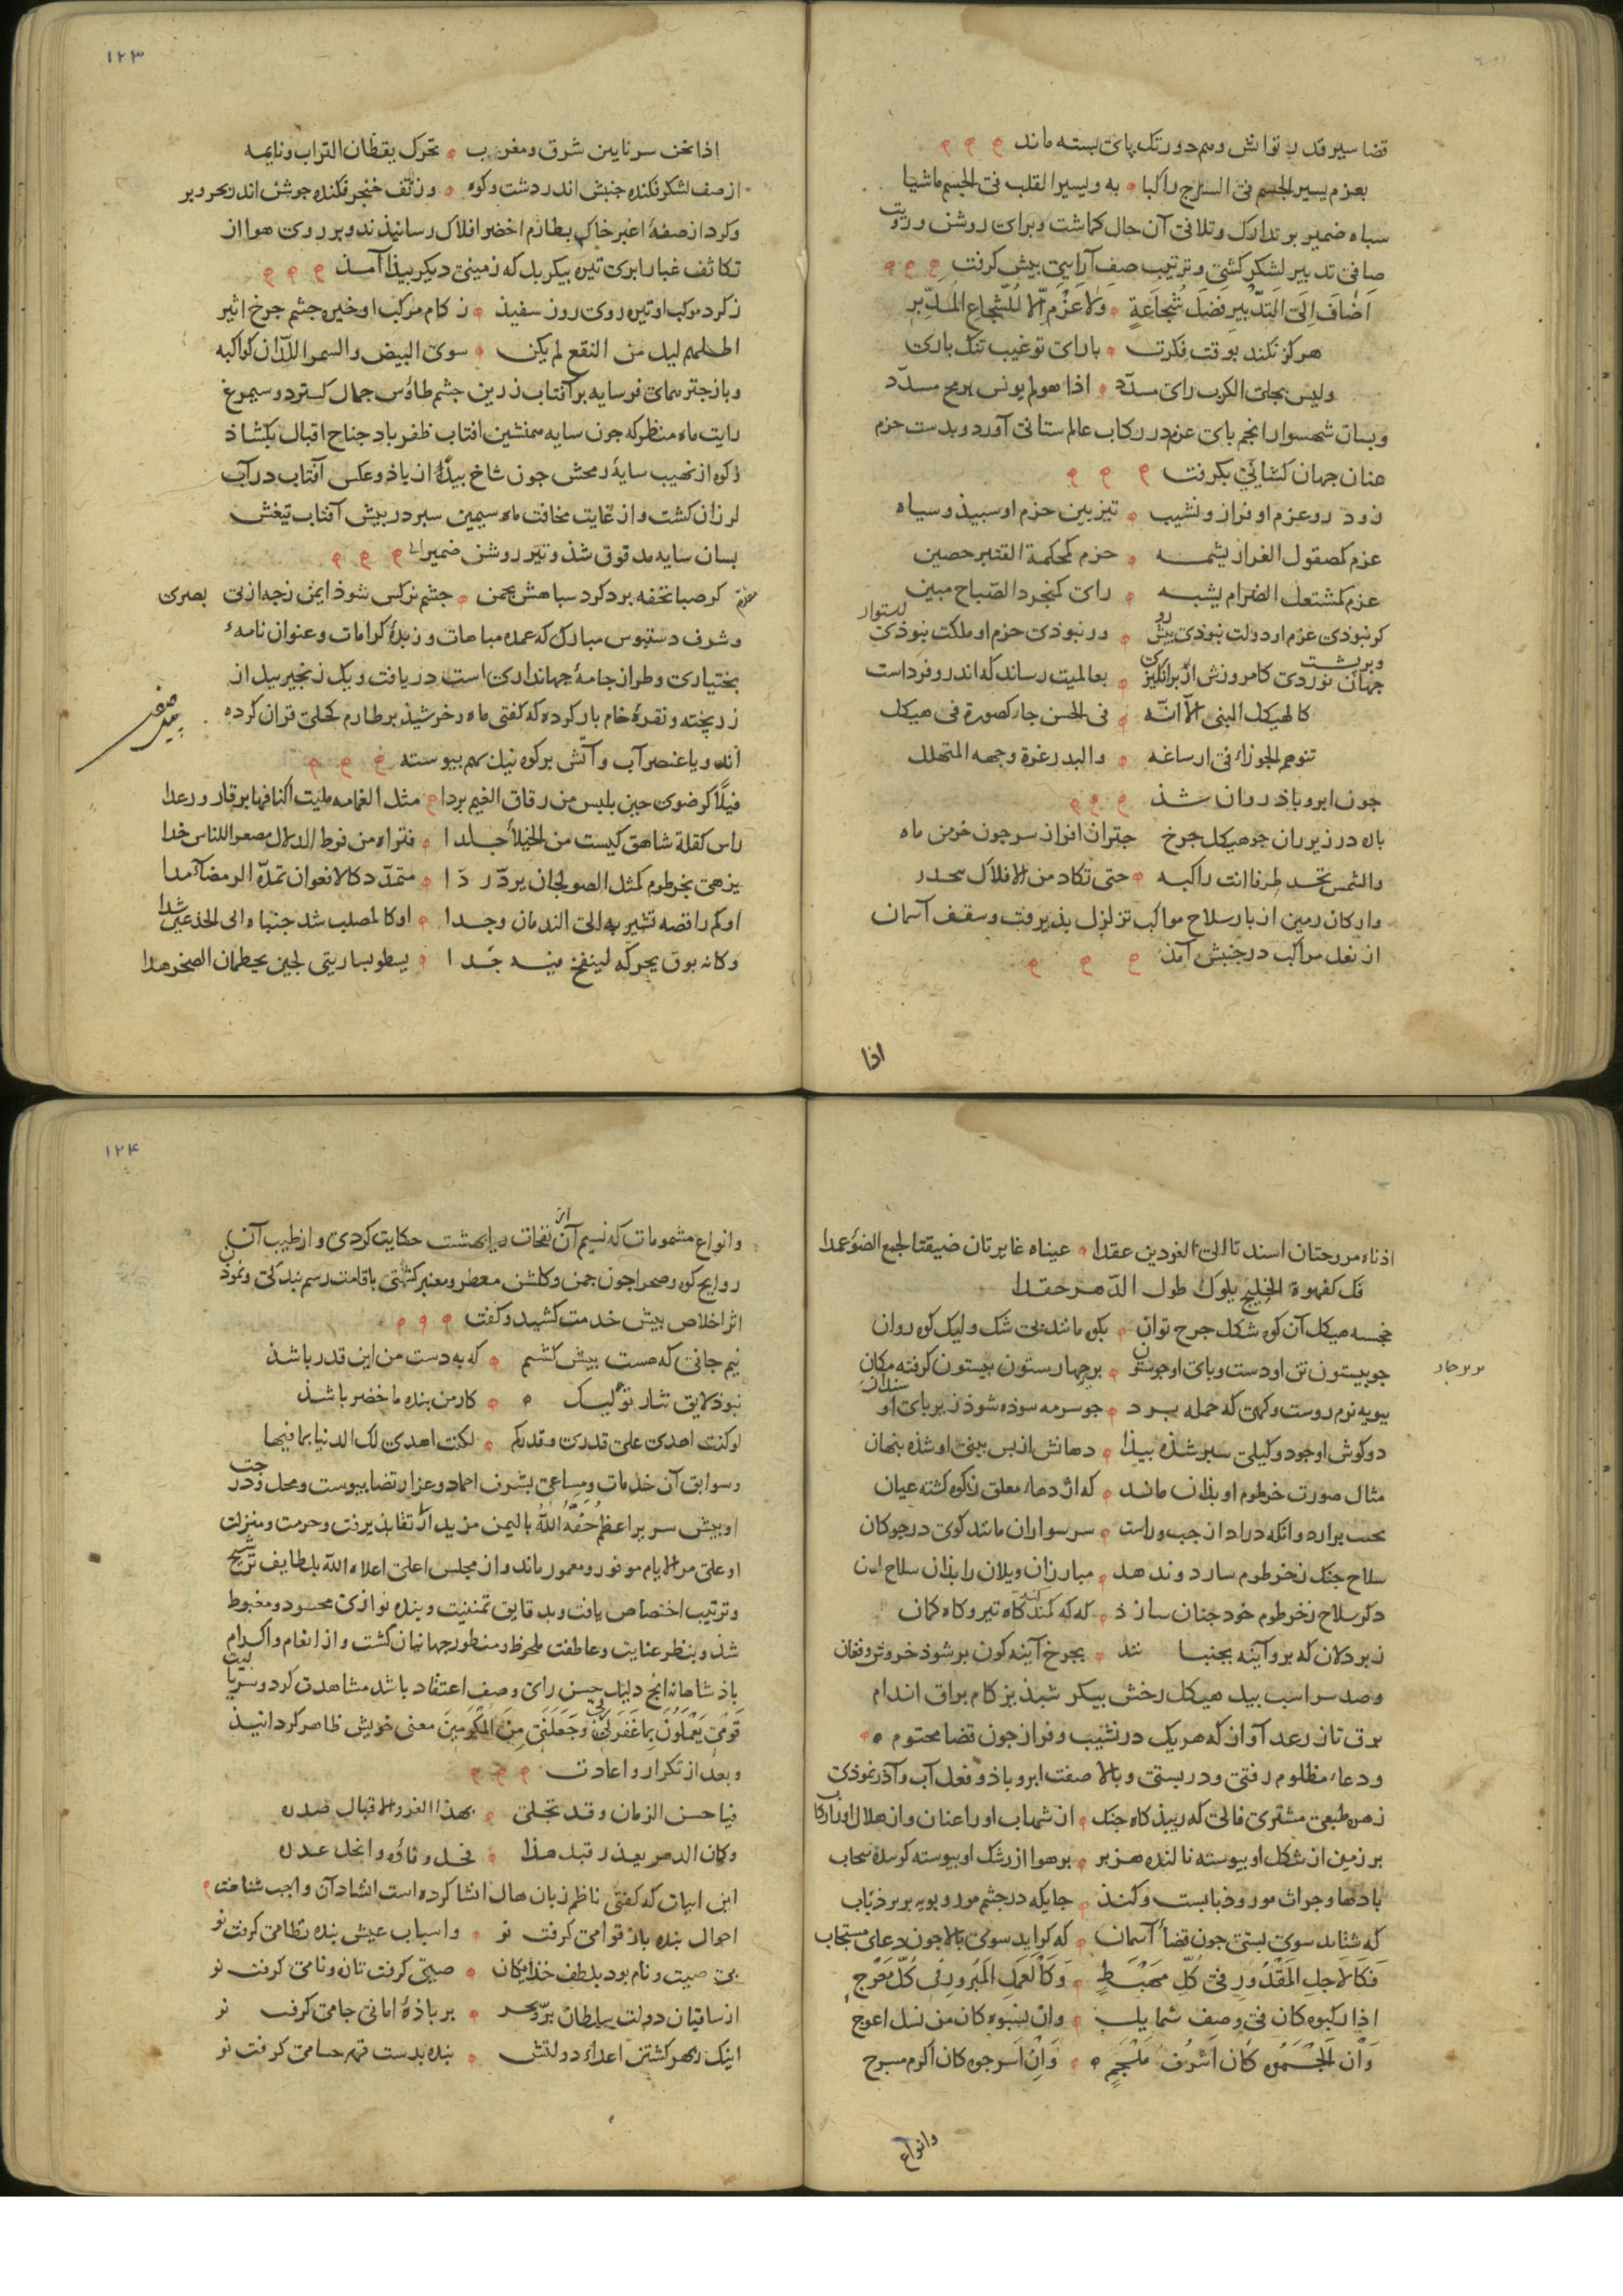 قضا سیر قدر توانش وهم دورتک پای بسته ماند
بعزم یسیر الجسم فی السرج راکبا به ویسیر القلب فی الجسم ماشیا
سباه ضمیر بر تدارک وتلافی آن حال کماشت وبرای روشن ورویت
صافی تدبیر لشکر کشی وترتیب صف آرایی بیش کرفت
اَضافَ اِلَی التَّدْبیرِ فَضْلَ شُجاعَةٍ وَلا عَزْمَ اِلّا لِلشُّجاعِ المُدَبِّر
هرکز نکند بوقت فکرت بارای تو غیب تنک باری
ولیس یجلی الکرب رای مسدّد اذا هو لم یونس برمح مسدّد
وبسان شهسوار انجم بای عزم در رکاب عالم ستانی آورد وبدست حزم
عنان جهان کشائی بکرفت
زود رو عزم او فراز ونشیب تیزبین حزم او سبید وسیاه
عزم کمصقول الغرار یشمه حزم کمحکمة القتیر حصین
عزم کمشتعل الضرام یشبه رای کمنجرد الصّباح مبین
کر نبودی عزم او دولت نبودی بیش رو ور نبودی حزم او ملکت نبودی استوار
جهان نوردی کامروزش ار برانکیزی بعالمیت رساند که اندرو فرداست
کالهیکل المبنی الّا انّه فی الحسن جاء کصورة فی هیکل
تتوهم الجوزاء فی ارساغه والبدر غرة وجهه المتهلل
جون ابر وباد روان شد
باره در زیر ران جو هیکل جرخ جتر از افراز سر جون خرمن ماه
والشمس تحسد طرفا انت راکبه حتی تکاد من الافلاک تنحدر
وارکان زمین از بار سلاح مواکب تزلزل بذیرفت وسقف آسمان
از نعل مراکب در جنبش آمد
اذا
۱۲۳
اذا نحن سرنا بین شرق ومغرب تحرک یقظان التراب ونایمه
از صف لشکر فکنده جنبش اندر دشت وکوه وز تف خنجر فکنده جوشش اندر بحر وبر
وکرد از صفهٔ اغبر خاک بطارم اخضر افلاک رسانیدند وبر روی هوا از
تکاثف غبار ابری تیره بیکر بل که زمینی دیکر بیدا آمد
ز کرد موکب او تیره روی روز سفید ز کام مرکب او خیره جشم جرخ اثیر
اطلعتم لیل من النقع لم یکن سوی البیض والسمر اللّدان کواکبه
وباز جتر همای فر سایه بر آفتاب زرین جشم طاوس جمال کسترد وسیمرغ
رایت ماه منظر که جون سایه همنشین افتاب ظفر باد جناح اقبال بکشاد
وکوه از نهیب سایهٔ رمحش جون شاخ بید از باد وعکس آفتاب در آب
لرزان کشت واز غایت مخافت ماه سیمین سبر در بیش آفتاب تیغش
بسان سایه مدقوق شد وتیر روشن ضمیر الی
کر صبا تحفه برد کرد سباهش بجمن جشم نرکس شود ایمن زجه از بی بصری
وشرف دستبوس مبارک که عمده مباهات وزبدهٔ کرامات وعنوان نامهٔ
بختیاری وطراز جامهٔ جهانداری است دریافت ویک زنجیر بیل از
زر بخته ونقرهٔ خام بار کرده که کفتی ماه وخرشید بر طارم کحلی قران کرده
اند ویا عنصر آب وآتش بر کوه نیل بهم بیوسته
فیلا کرضوی حین یلبس من رقاق الغیم بردا مثل الغمامه ملیت اکنافها برقا ورعدا
راس کقلة شاهق کیست من الخیلاء جلدا فتراه من فرط الدلال مصعرا للناس خدا
یزهی بخرطوم کمثل الصولجان یردّ ردّا متمدّد کالافعوان تمدّه الرمضاء مدا
او کم راقصه تشیر به الی الندمان وجدا او کالمصلب شد جنباه الی الجذعین شدا
وکانه بوق یحرکه لینفخ فیه جدا یسطو بساریتی لجین یحطمان الصخر هدا
اذناه مروحتان اسندتا الی الفودین عقدا عیناه غایرتان ضیقتا لجمع الضوء عمدا
فک کفوهة الخلیج یلوک طول الدهر حقدا
خجسته هیکل آن کوه شکل جرح توان بکوه مانند بی شک ولیک کوه روان
جو بیستون تن او دست وبای او جو ستون بر جهار ستون بیستون کرفته مکان
ببویه نرم روست وکهی که حمله برد جو سرمه سوده شود زیر بای او سندان
دو کوش او جو دو کیلی سبر شده بیدا دهانش از بس بینی او شده بنهان
مثال صورت خرطوم او بدان ماند که اژدهاء معلق زکوه کشته عیان
سلاح جنک بخرطوم سازد وندهد مبارزان ویلان را بدان سلاح امان
دکر سلاح بخرطوم خود جنان سازد که که کمند کند کاه تیر وکاه کمان
ز بردلان که برو آینه بجنباند بجرخ آینه کون بر شود خروش وفغان
وصد سر اسب بیل هیکل رخش بیکر شبدیز کام براق اندام
برق تاز رعد آواز که هر یک در نشیب وفراز جون قضا محتوم
ودعاء مظلوم رفتی ودر بستی وبالا صفت ابر وباد وفعل آب وآذر نمودی
زهره طبعی مشتری فالی که زیبد کاه جنک از شهاب او را عنان واز هلال او را رکاب
بر زمین از شکل او بیوسته نالنده هزبر بر هوا از رشک او بیوسته کرینده سحاب
که شتابد سوی بستی جون قضاء آسمان که کراید سوی بالا جون دعای مستجاب
فَکَالاَجَلِ المَقْدُورِ فی کُلِّ مَهْبِطٍ وَکَالعَمَلِ المَبْرورِ فی کُلِّ مَعْرَجٍ
اذا رکبوه کان فی وصف شمایل وان نسبوه کان من نسل اعوج
وَاِنْ اَلْجَمُوه کانَ اَشْرَفَ مُلْجَمٍ وَاِنْ اَسْرجوه کان اکرم مسرج
وانواع
۱۲۴
وانواع مشمومات که نسیم آن از نفحات ریاض بهشت حکایت کردی واز طیب آن
روایح کوه وصحرا جون جمن وکلشن معطر ومعنبر کشتی باقامت رسم بندکی ونمودن
اثر اخلاص بیش خدمت کشید وکفت
نیم جانی که هست بیش کشم که به دست من این قدر باشد
نبود لایق نثار تو لیک کار من بنده ما خضر باشد
لو کنت اهدی علی قدری وقدرکم لکنت اهدی لک الدنیا بما فیها
وسوابق آن خدمات ومساعی بشرف احماد وعز ارتضا بیوست ومحل ودرجت
او بیش سریر اعظم حَفَّهُ اللهُ بالیمن مزید ارتقا بذیرفت وحرمت ومنزلت
او علی مر الایام موفور ومعمور ماند واز مجلس اعلی اعلاه الله بلطایف ترشیح
وترتیب اختصاص یافت وبدقایق تمنیت وبنده نوازی محسود ومغبوط
شد وبنظر عنایت وعاطفت ملحوظ ومنظور جهانیان کشت واز انعام واکرام
باذشاهانه انج دلیل حسن رای وصف اعتقاد باشد مشاهدت کرد وسر یا لیت
قَومی یَعْلَمُونَ بِما غَفَرَ لی رَبّی وَجَعَلَنی مِنَ المُکْرَمینَ معنی خویش ظاهر کردانید
وبعد از تکرار واعادت
فیا حسن الزمان وقد تجلی بهذا الغز والاقبال صدره
وکان الدهر یعذر قبل هذا فحل وفاؤه وانحل عذره
این ابیات که کفتی ناظم زبان حال انشا کرده است انشاد آن واجب شناخت
احوال بنده باز قوامی کرفت نو واسباب عیش بنده نظامی کرفت نو
بی صیت ونام بود بلطف خذایکان صیتی کرفت تازه ونامی کرفت نو
از ساقیان دولت سلطان برّ وبحر بر باذهٔ امانی جامی کرفت نو
اینک بهر کشتن اعداء دولتش بنده بدست قهر حسامی کرفت نو